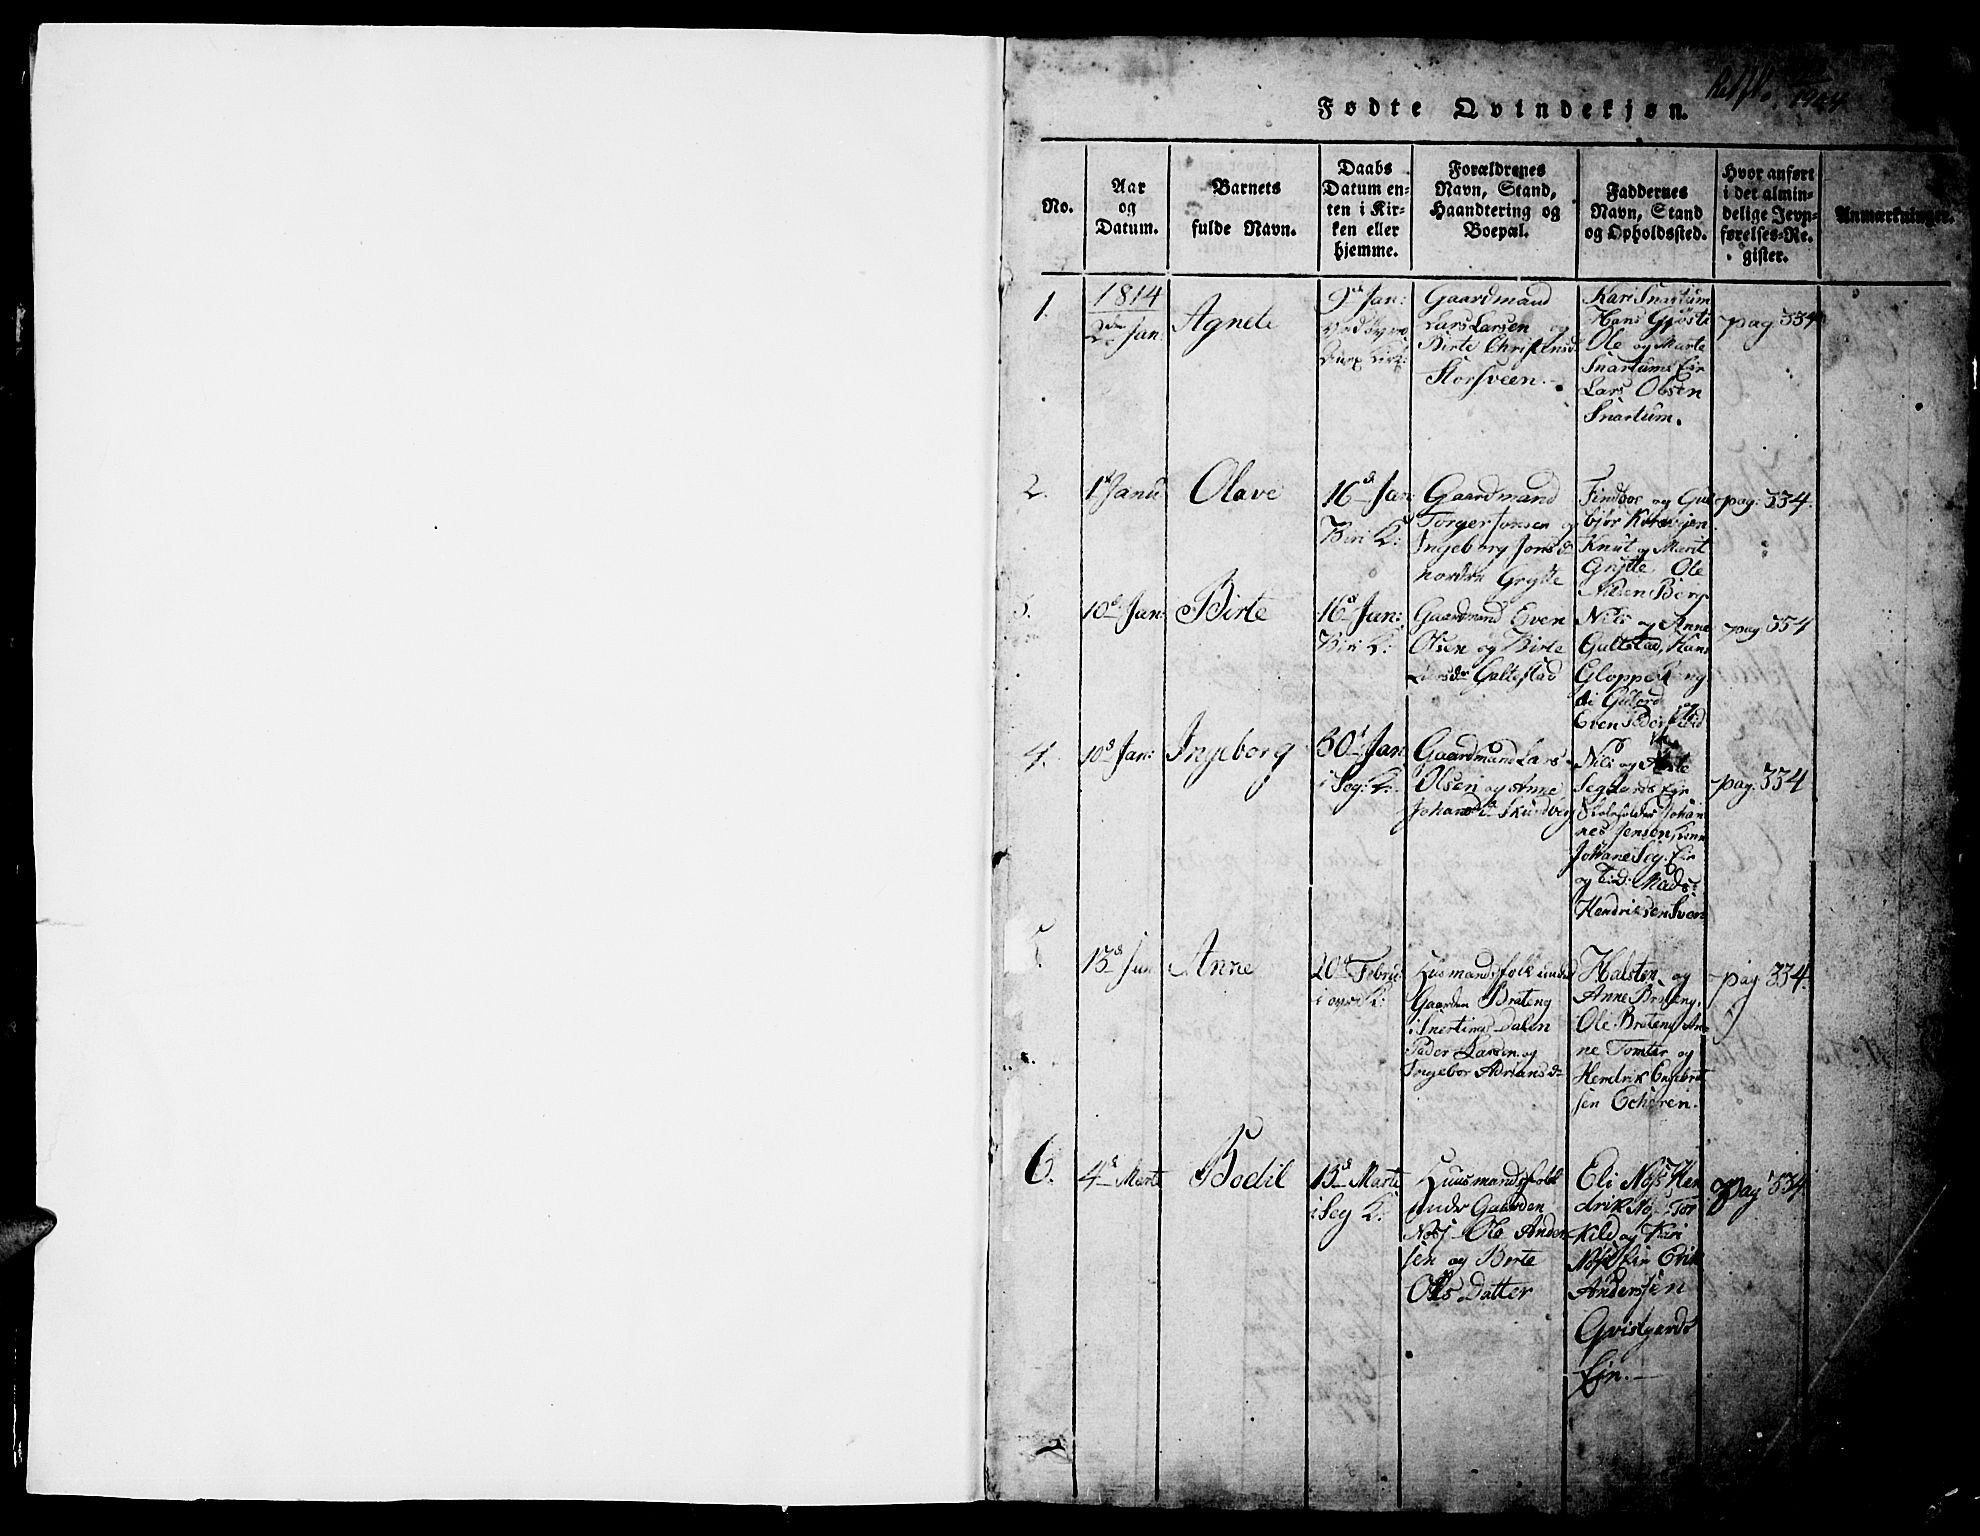 1944
Fødte Qvindekjøn.
No.
Aar
og
Datum.
Barnets
fulde Navn.
Daabs
Datum en-
ten i Kir-
ken eller
hjemme.
Forældrenes
Navn, Stand,
Haandtering og
Boepæl.
Faddernes
Navn, Stand
og Opholdssted.
Hvor anført
i det almin-
delige Jevn-
førelses-Re-
gister.
Anmærkninger.
1.
1814
2den Jan:
Agnete
9d Jan:
Gaardmand
Lars Larsen og
Birte Christensd.
Storsveen.
Kari Snartum
Hans
Ole og Marte
Snartums Eir
Lars Olsen
Snartum.
pag 334
2.
1st Janu
Olave
16d Jan:
Biri K:
Gaardmand
Torger Jonsen og
Ingeborg Jons d.
nordre Grytte
Findbor og Gul
bjør
Knut og Marit
Grytte Ole
Nilsen Berg
pag: 334
3.
10d Jan:
Birte
16d Jan:
Biri K:
Gaardmand Even
Olsen og Birte
Larsdr Gultestad
Nils og Anne
Gultstad, Hans
Gloppe
Even
pag 334
4.
10d Jan:
Ingeborg
30d Jan
i Seg: K:
Gaardmand Lars
Olsen og Anne
Johansd. Skundberg
Nils og
Segaards Eir
Skoleholder Johan
nes Jensen,
Johane Seg. Eir
og Mads
Hendriksen Sveen
pag: 334
5.
13d Jan
Anne
20d Febru
Husmandsfolk under
Gaarden Brateng
i Snertings Dalen
Peder Larsen og
Ingebor Adriansd.
Halsten og
Anne Brateng,
Ole Brateng An-
ne Tomter og
Hendrik Engebret
sen Echeren.
pag 334.
6.
4d Marte
Bodil
13d Marte
i Seg K:
Huusmandsfolk
under Gaarden
Nøss Ole Ander
sen og Berte
Ols Datter
Eli Nøss Hen
drik Nøs Tor
kild og Kari
Nøss Eir Erik
Anderssen
Qvistgards
Ejn.
pag 334